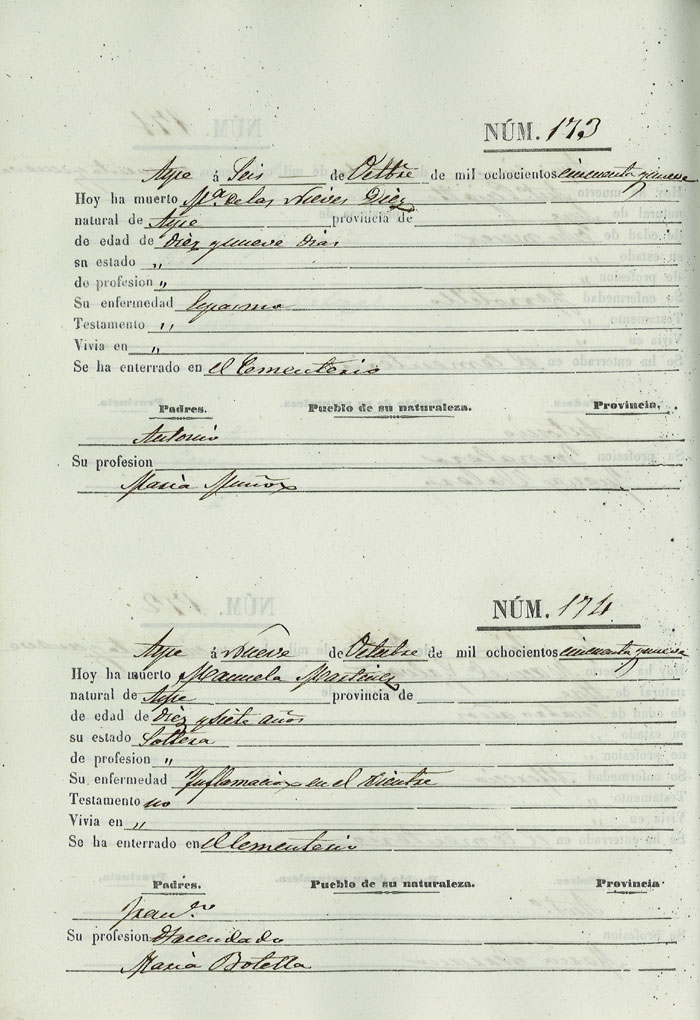 NÚM. 173
Aspe á Seis de Octbre de mil ochocientos cincuenta y nueve
Hoy ha muerto Mª de las Nieves Diez
natural de Aspe provincia de
de edad de diez y nueve dias
sn estado "
de profesion "
Su enfermedad Espasmo
Testamento "
Vivia en "
Se ha enterrado en el Cementerio
Padres. Pueblo de su naturaleza. Provincia.
Antonio
Su profesion
Maria Muñoz
NÚM. 174
Aspe á Nueve de Octubre de mil ochocientos cincuenta y nueve
Hoy ha muerto Manuela Martinez
natural de Aspe provincia de
de edad de diez y siete años
su estado Soltera
de profesion "
Su enfermedad Inflamacion en el vientre
Testamento no
Vivia en "
Se ha enterrado en el Cementerio
Padres. Pueblo de su naturaleza. Provincia
Franco
Su profesion Hacendado
Maria Botella